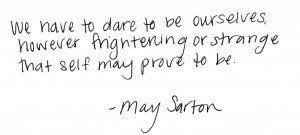 We have to dare to be ourselves,
however frightening or strange
that self may prove to be.
-May Sarton